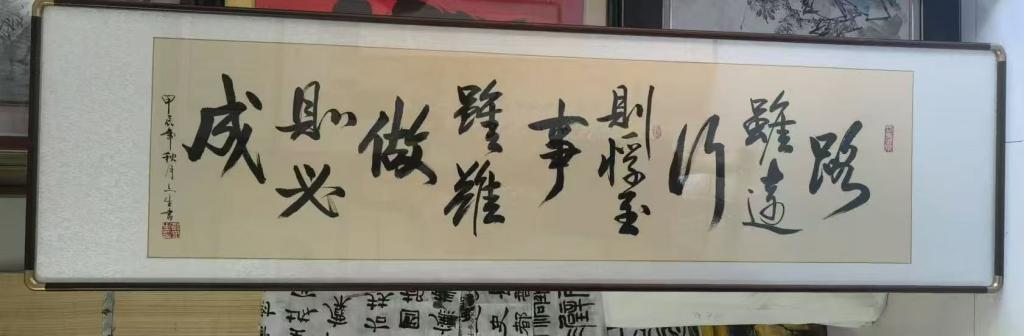 路
雖遠
行
則將至
事
雖難
做
則必
成
甲辰年秋月